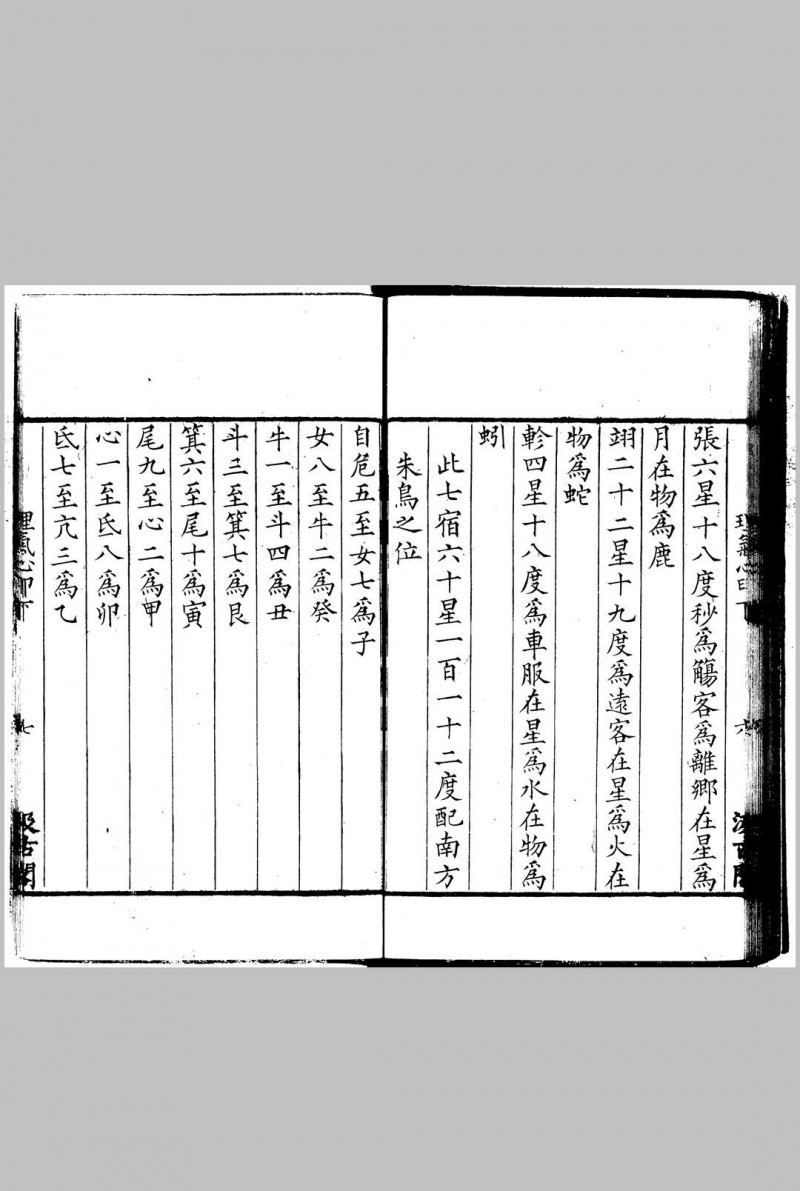 張六星十八度秒爲觴客爲離鄉在星爲
月在物爲鹿
翊二十二星十九度爲遠客在星爲火在
物爲蛇
軫四星十八度爲車服在星爲水在物爲
蚓
此七宿六十星一百一十二度配南方
朱鳥之位
自危五至女七爲子
女八至牛二爲癸
牛一至斗四爲丑
斗三至箕七爲艮
箕六至尾十爲寅
尾九至心二爲甲
心一至氐八爲卯
氐七至亢三爲乙
理氣心印下
七
汲古閣